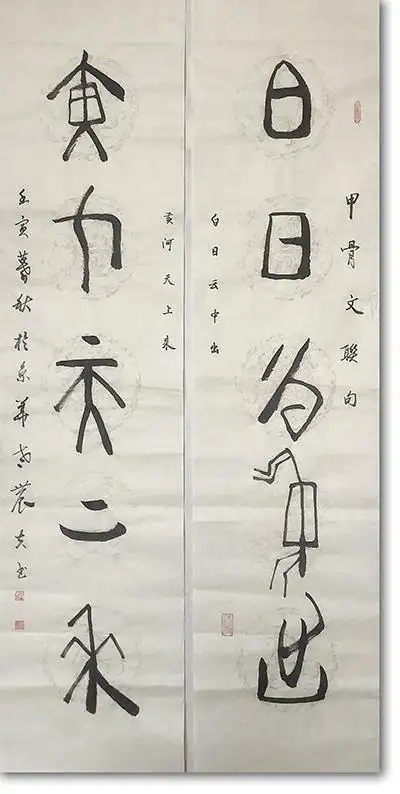 甲骨文联句
白日云中出
白日云中出
黄河天上来
黄河天上来
壬寅暮秋于京华
书